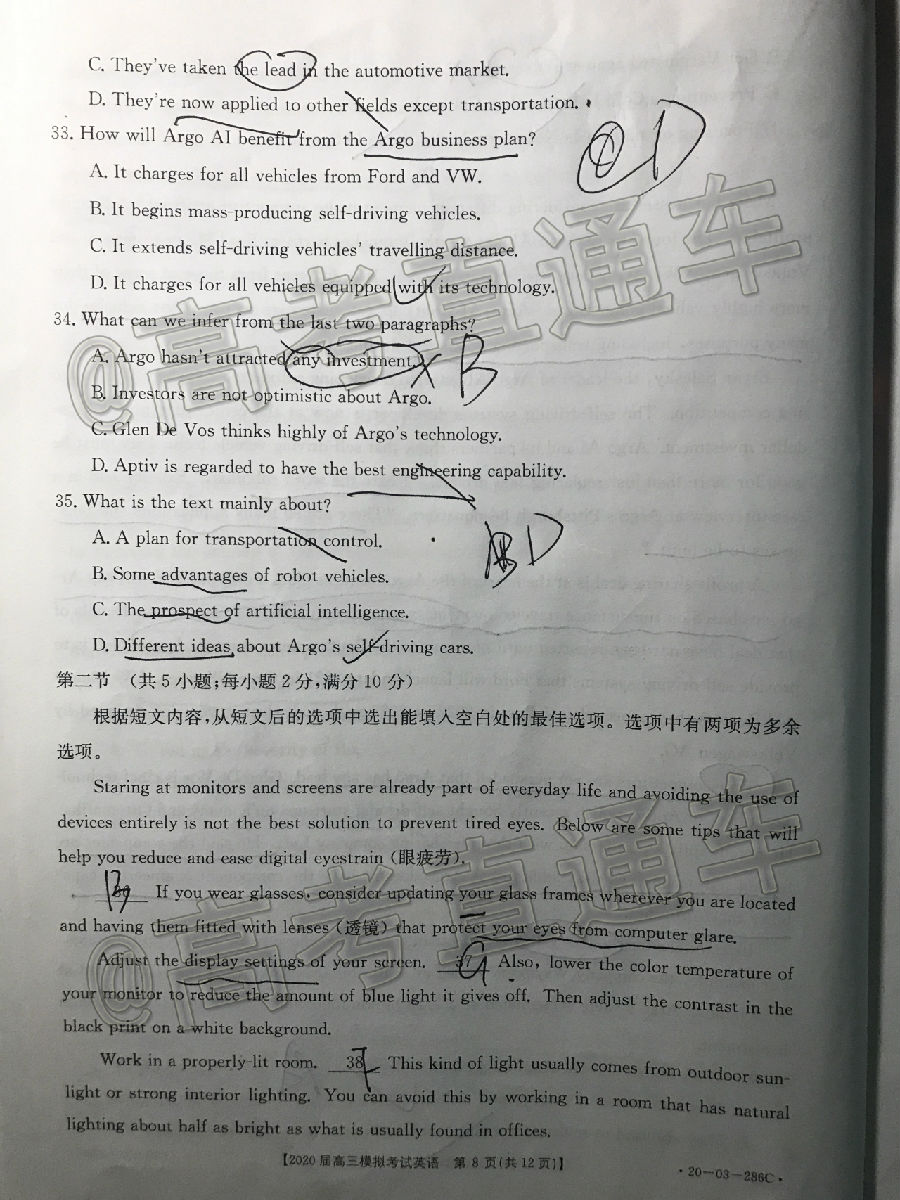 C. They've taken the lead in the automotive market.
D. They're now applied to other fields except transportation.
33. How will Argo AI benefit from the Argo business plan?
D
A. It charges for all vehicles from Ford and VW.
B. It begins mass-producing self-driving vehicles.
C. It extends self-driving vehicles' travelling distance.
D. It charges for all vehicles equipped with its technology.
34. What can we infer from the last two paragraphs?
A. Argo hasn't attracted any investment.
B
B. Investors are not optimistic about Argo.
C. Glen De Vos thinks highly of Argo's technology.
D. Aptiv is regarded to have the best engineering capability.
35. What is the text mainly about?
A. A plan for transportation control.
D
B. Some advantages of robot vehicles.
C. The prospect of artificial intelligence.
D. Different ideas about Argo's self-driving cars.
第二节 (共5小题;每小题2分,满分10分)
根据短文内容,从短文后的选项中选出能填入空白处的最佳选项。选项中有两项为多余
选项。
Staring at monitors and screens are already part of everyday life and avoiding the use of
devices entirely is not the best solution to prevent tired eyes. Below are some tips that will
help you reduce and ease digital eyestrain (眼疲劳).
If you wear glasses, consider updating your glass frames wherever you are located
and having them fitted with lenses (透镜) that protect your eyes from computer glare.
Adjust the display settings of your screen. 37 G Also, lower the color temperature of
your monitor to reduce the amount of blue light it gives off. Then adjust the contrast in the
black print on a white background.
Work in a properly-lit room. 38 F This kind of light usually comes from outdoor sun-
light or strong interior lighting. You can avoid this by working in a room that has natural
lighting about half as bright as what is usually found in offices.
【2020届高三模拟考试英语 第8页(共12页)】
·20-03-286C·
@高考直通车
@高考直通车